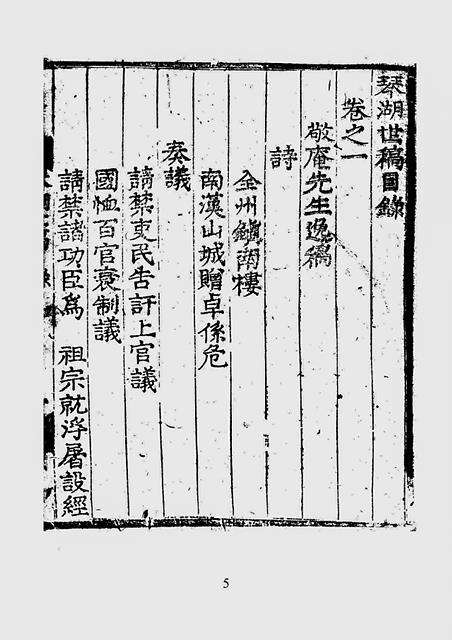 琴湖世稿目錄
卷之一
敬庵先生逸稿
詩
全州鎭南樓
南漢山城贈卓係危
奏議
請禁吏民告訐上官議
國恤百官衰制議
請禁諸功臣爲 祖宗就浮屠設經
5